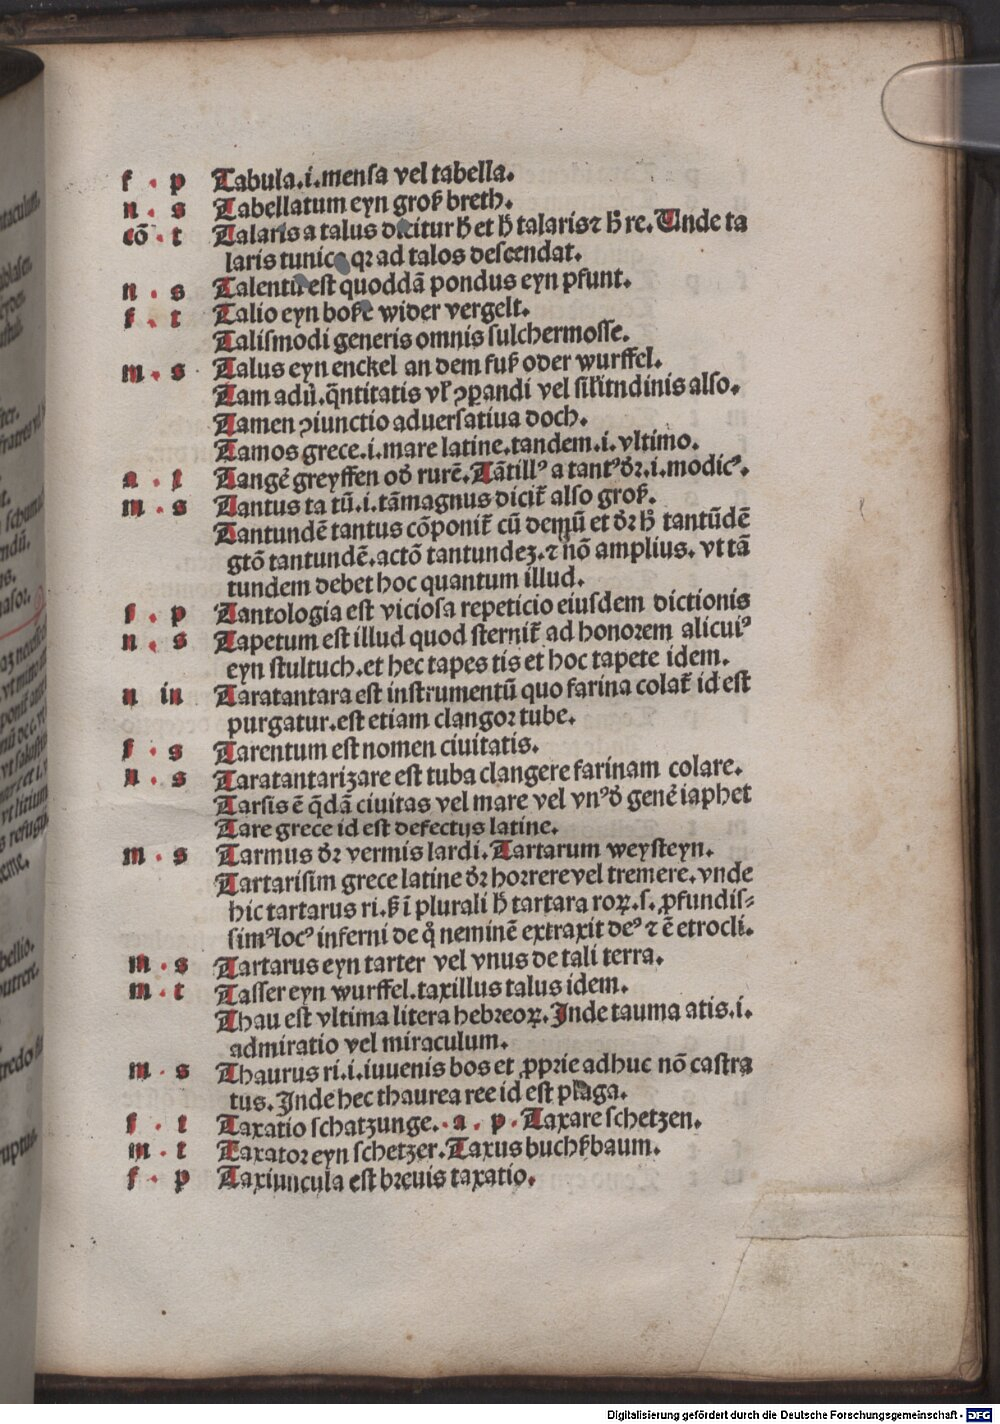 f . p Tabula.i.mensa vel tabella.
n . s Tabellatum eyn groß breth.
cō . t Talaris a talus dicitur hͦ et hͦ talarisꝛ hͦ re.Unde ta
laris tunica qꝛ ad talos descendat.
n . s Talentū est quoddā pondus eyn pfunt.
f . t Talio eyn boße wider vergelt.
Talismodi generis omnis sulchermosse.
m . s Talus eyn enckel an dem fuß oder wurffel.
Tam adū.q̄ntitatis vl' ꝯꝑandi vel sil'itudinis also.
Tamen ꝯiunctio aduersatiua doch.
Tamos grece.i.mare latine.tandem.i.vltimo.
a . t Tangē greyffen od' rurē.Tātillꝰ a tantꝰ dꝛ.i.modicꝰ.
m . s Tantus ta tū.i.tāmagnus dicit̄ also groß.
Tantundē tantus cōponit̄ cū demū et dꝛ hͦ tantūdē
gtō tantundē.actō tantundeꝫ.⁊ nō amplius.vt tā
tundem debet hoc quantum illud.
f . p Tantologia est viciosa repeticio eiusdem dictionis
n . s Tapetum est illud quod sternit̄ ad honoꝛem alicuiꝰ
eyn stultuch.et hec tapes tis et hoc tapete idem.
n in Taratantara est instrumentū quo farina colat̄ id est
purgatur.est etiam clangoꝛ tube.
f . s Tarentum est nomen ciuitatis.
n . s Taratantarizare est tuba clangere farinam colare.
Tarsis ē q̄dā ciuitas vel mare vel vnꝰ d' genē iaphet
Tare grece id est defectus latine.
m . s Tarmus dꝛ vermis lardi.Tartarum weysteyn.
Tartarisim grece latine dꝛ hoꝛrere vel tremere.vnde
hic tartarus ri.ß ī plurali hͦ tartara roꝝ.s.ꝓfundis⸗
simꝰ locꝰ inferni de q̊ neminē extraxit deꝰ ⁊ ē etrocli.
m . s Tartarus eyn tarter vel vnus de tali terra.
m . t Tasser eyn wurffel.taxillus talus idem.
Thau est vltima litera hebꝛeoꝝ.Inde tauma atis.i.
admiratio vel miraculum.
m . s Thaurus ri.i.iuuenis bos et ꝓpꝛie adhuc nō castra
tus.Inde hec thaurea ree id est plaga.
f . t Taxatio schatzunge. . a . p . Taxare schetzen.
m . t Taxatoꝛ eyn schetzer.Taxus buchßbaum.
f . p Taxiuncula est bꝛeuis taxatio.
Digitalisierung gefördert durch die Deutsche Forschungsgemeinschaft - DFG